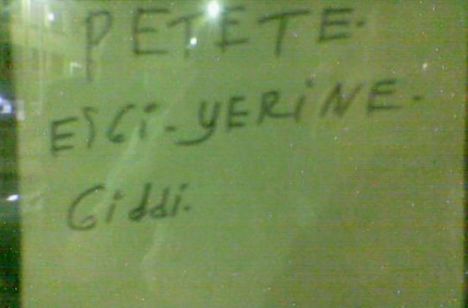 PETETE.
ESCİ-YERİNE.
Giddi.